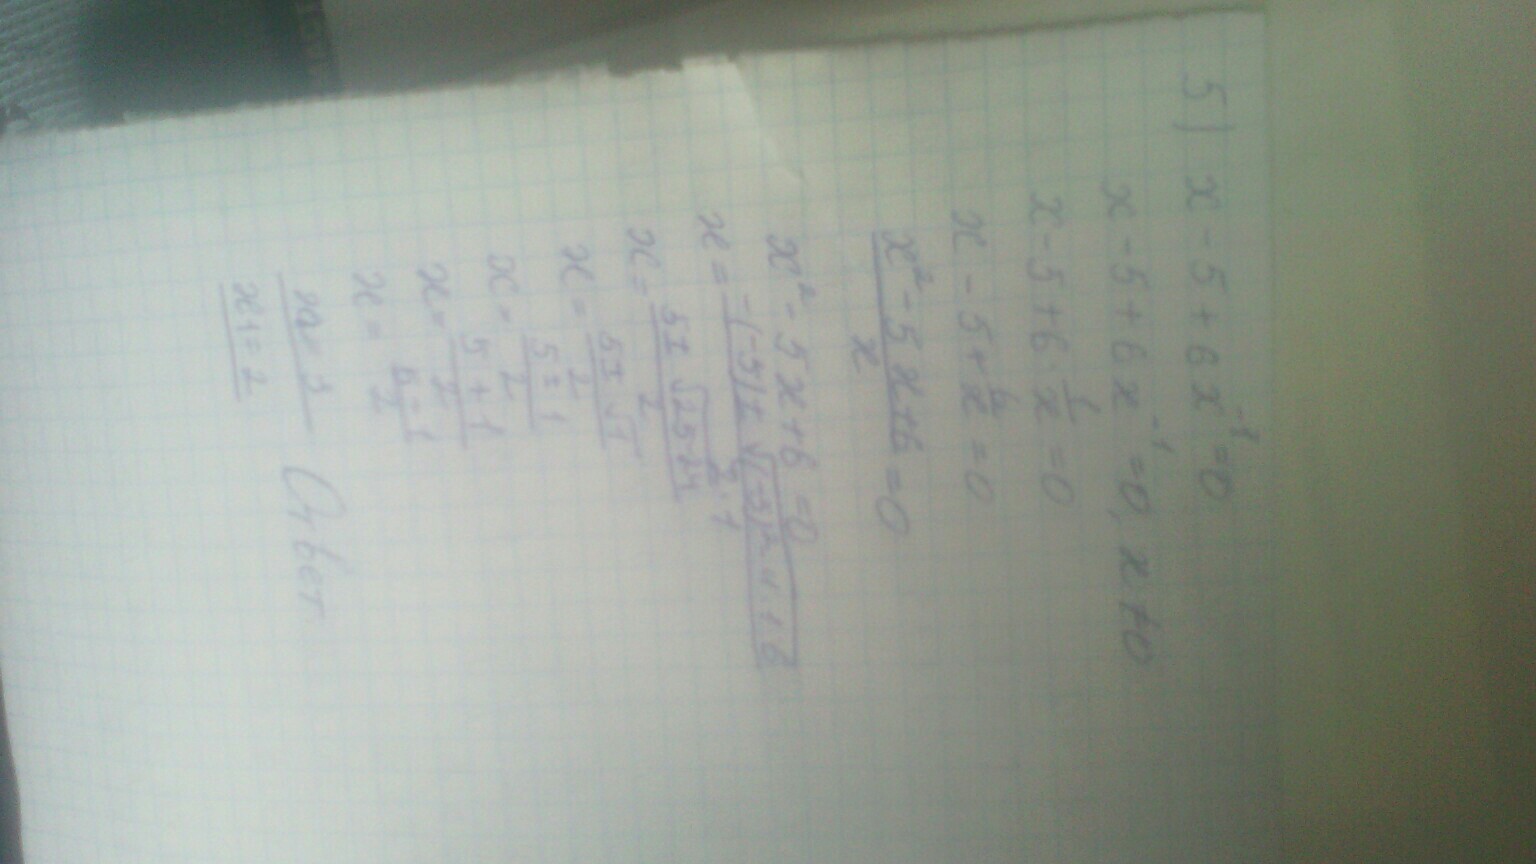 5) x - 5 + 6x⁻¹ = 0
x - 5 + 6x⁻¹ = 0, x ≠ 0
x - 5 + 6 · 1/x = 0
x - 5 + 6/x = 0
(x² - 5x + 6)/x = 0
x² - 5x + 6 = 0
x = (-(-5) ± √((-5)² - 4 · 1 · 6))/(2 · 1)
x = (5 ± √(25 - 24))/2
x = (5 ± √1)/2
x = (5 ± 1)/2
x = (5 + 1)/2
x = (5 - 1)/2
Ответ
x₁ = 2